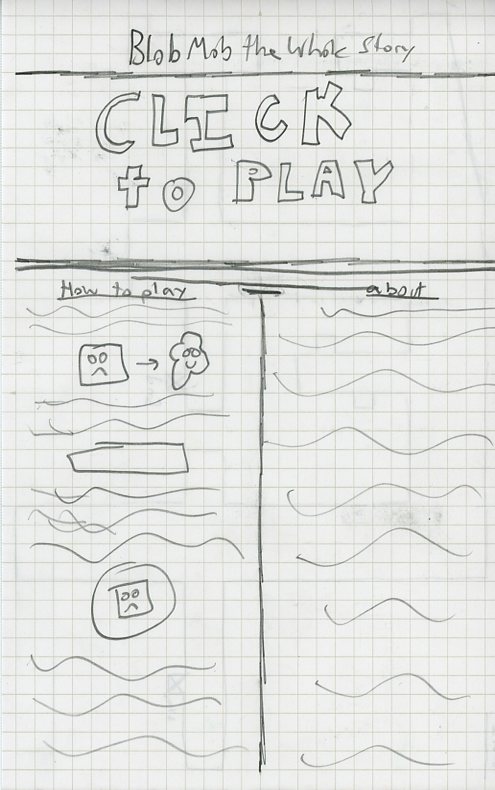 BlobMob the Whole Story
CLICK
to PLAY
How to play
about